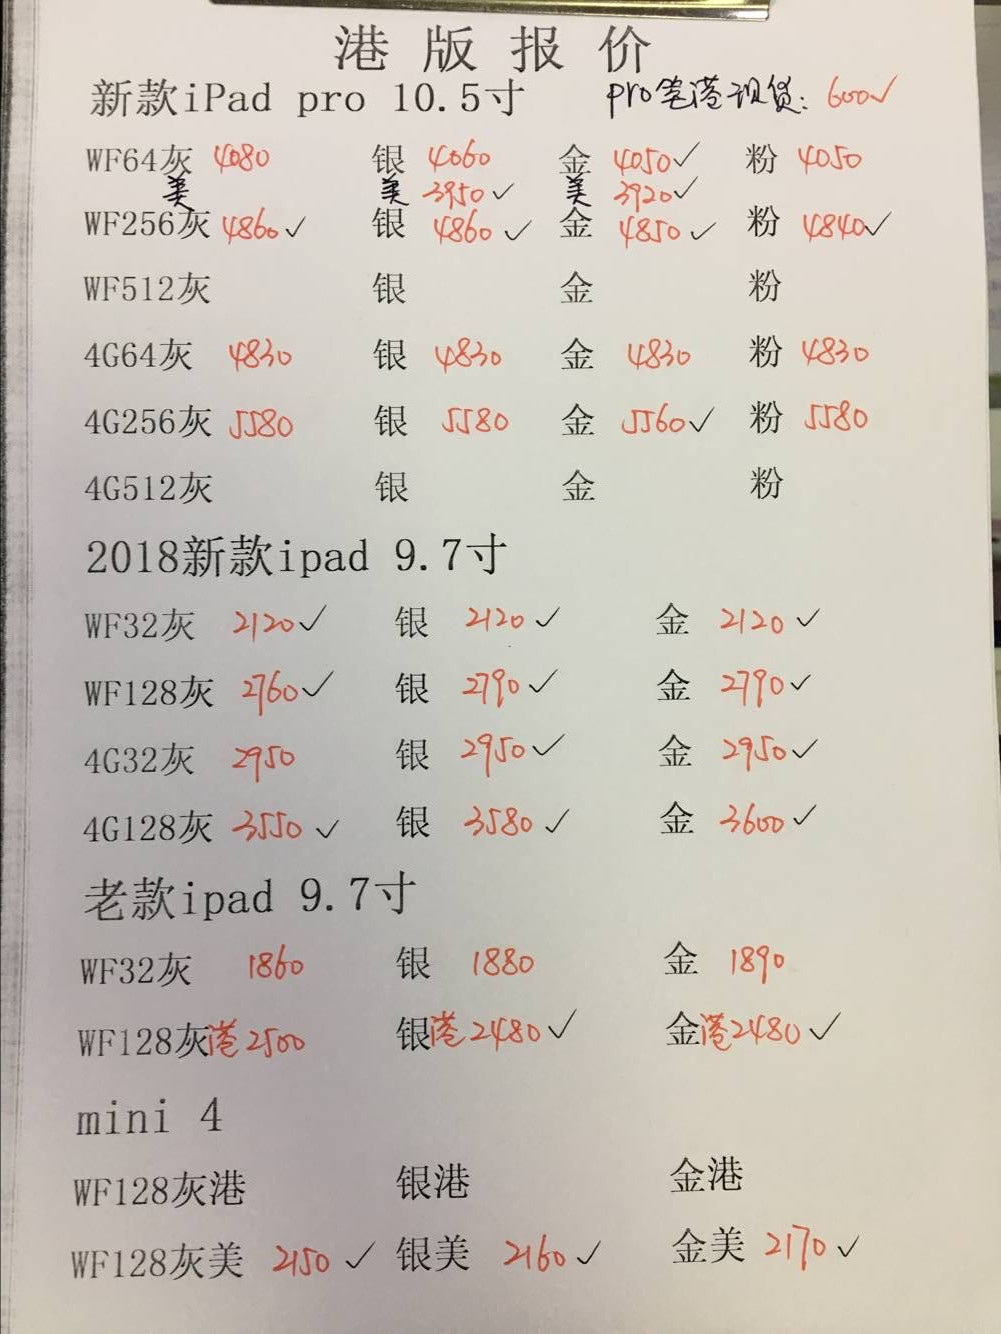 港版报价
新款iPad pro 10.5寸 pro笔港现货: 600✓
WF64灰 4080 银 4060 金 4050✓ 粉 4050
美 美 3950✓ 美 3920✓
WF256灰 4860✓ 银 4860✓ 金 4850✓ 粉 4840✓
WF512灰 银 金 粉
4G64灰 4830 银 4830 金 4830 粉 4830
4G256灰 5580 银 5580 金 5560✓ 粉 5580
4G512灰 银 金 粉
2018新款ipad 9.7寸
WF32灰 2120✓ 银 2120✓ 金 2120✓
WF128灰 2760✓ 银 2790✓ 金 2790✓
4G32灰 2950 银 2950✓ 金 2950✓
4G128灰 3550✓ 银 3580✓ 金 3600✓
老款ipad 9.7寸
WF32灰 1860 银 1880 金 1890
WF128灰港2500 银港2480✓ 金港2480✓
mini 4
WF128灰港 银港 金港
WF128灰美 2150✓ 银美 2160✓ 金美 2170✓